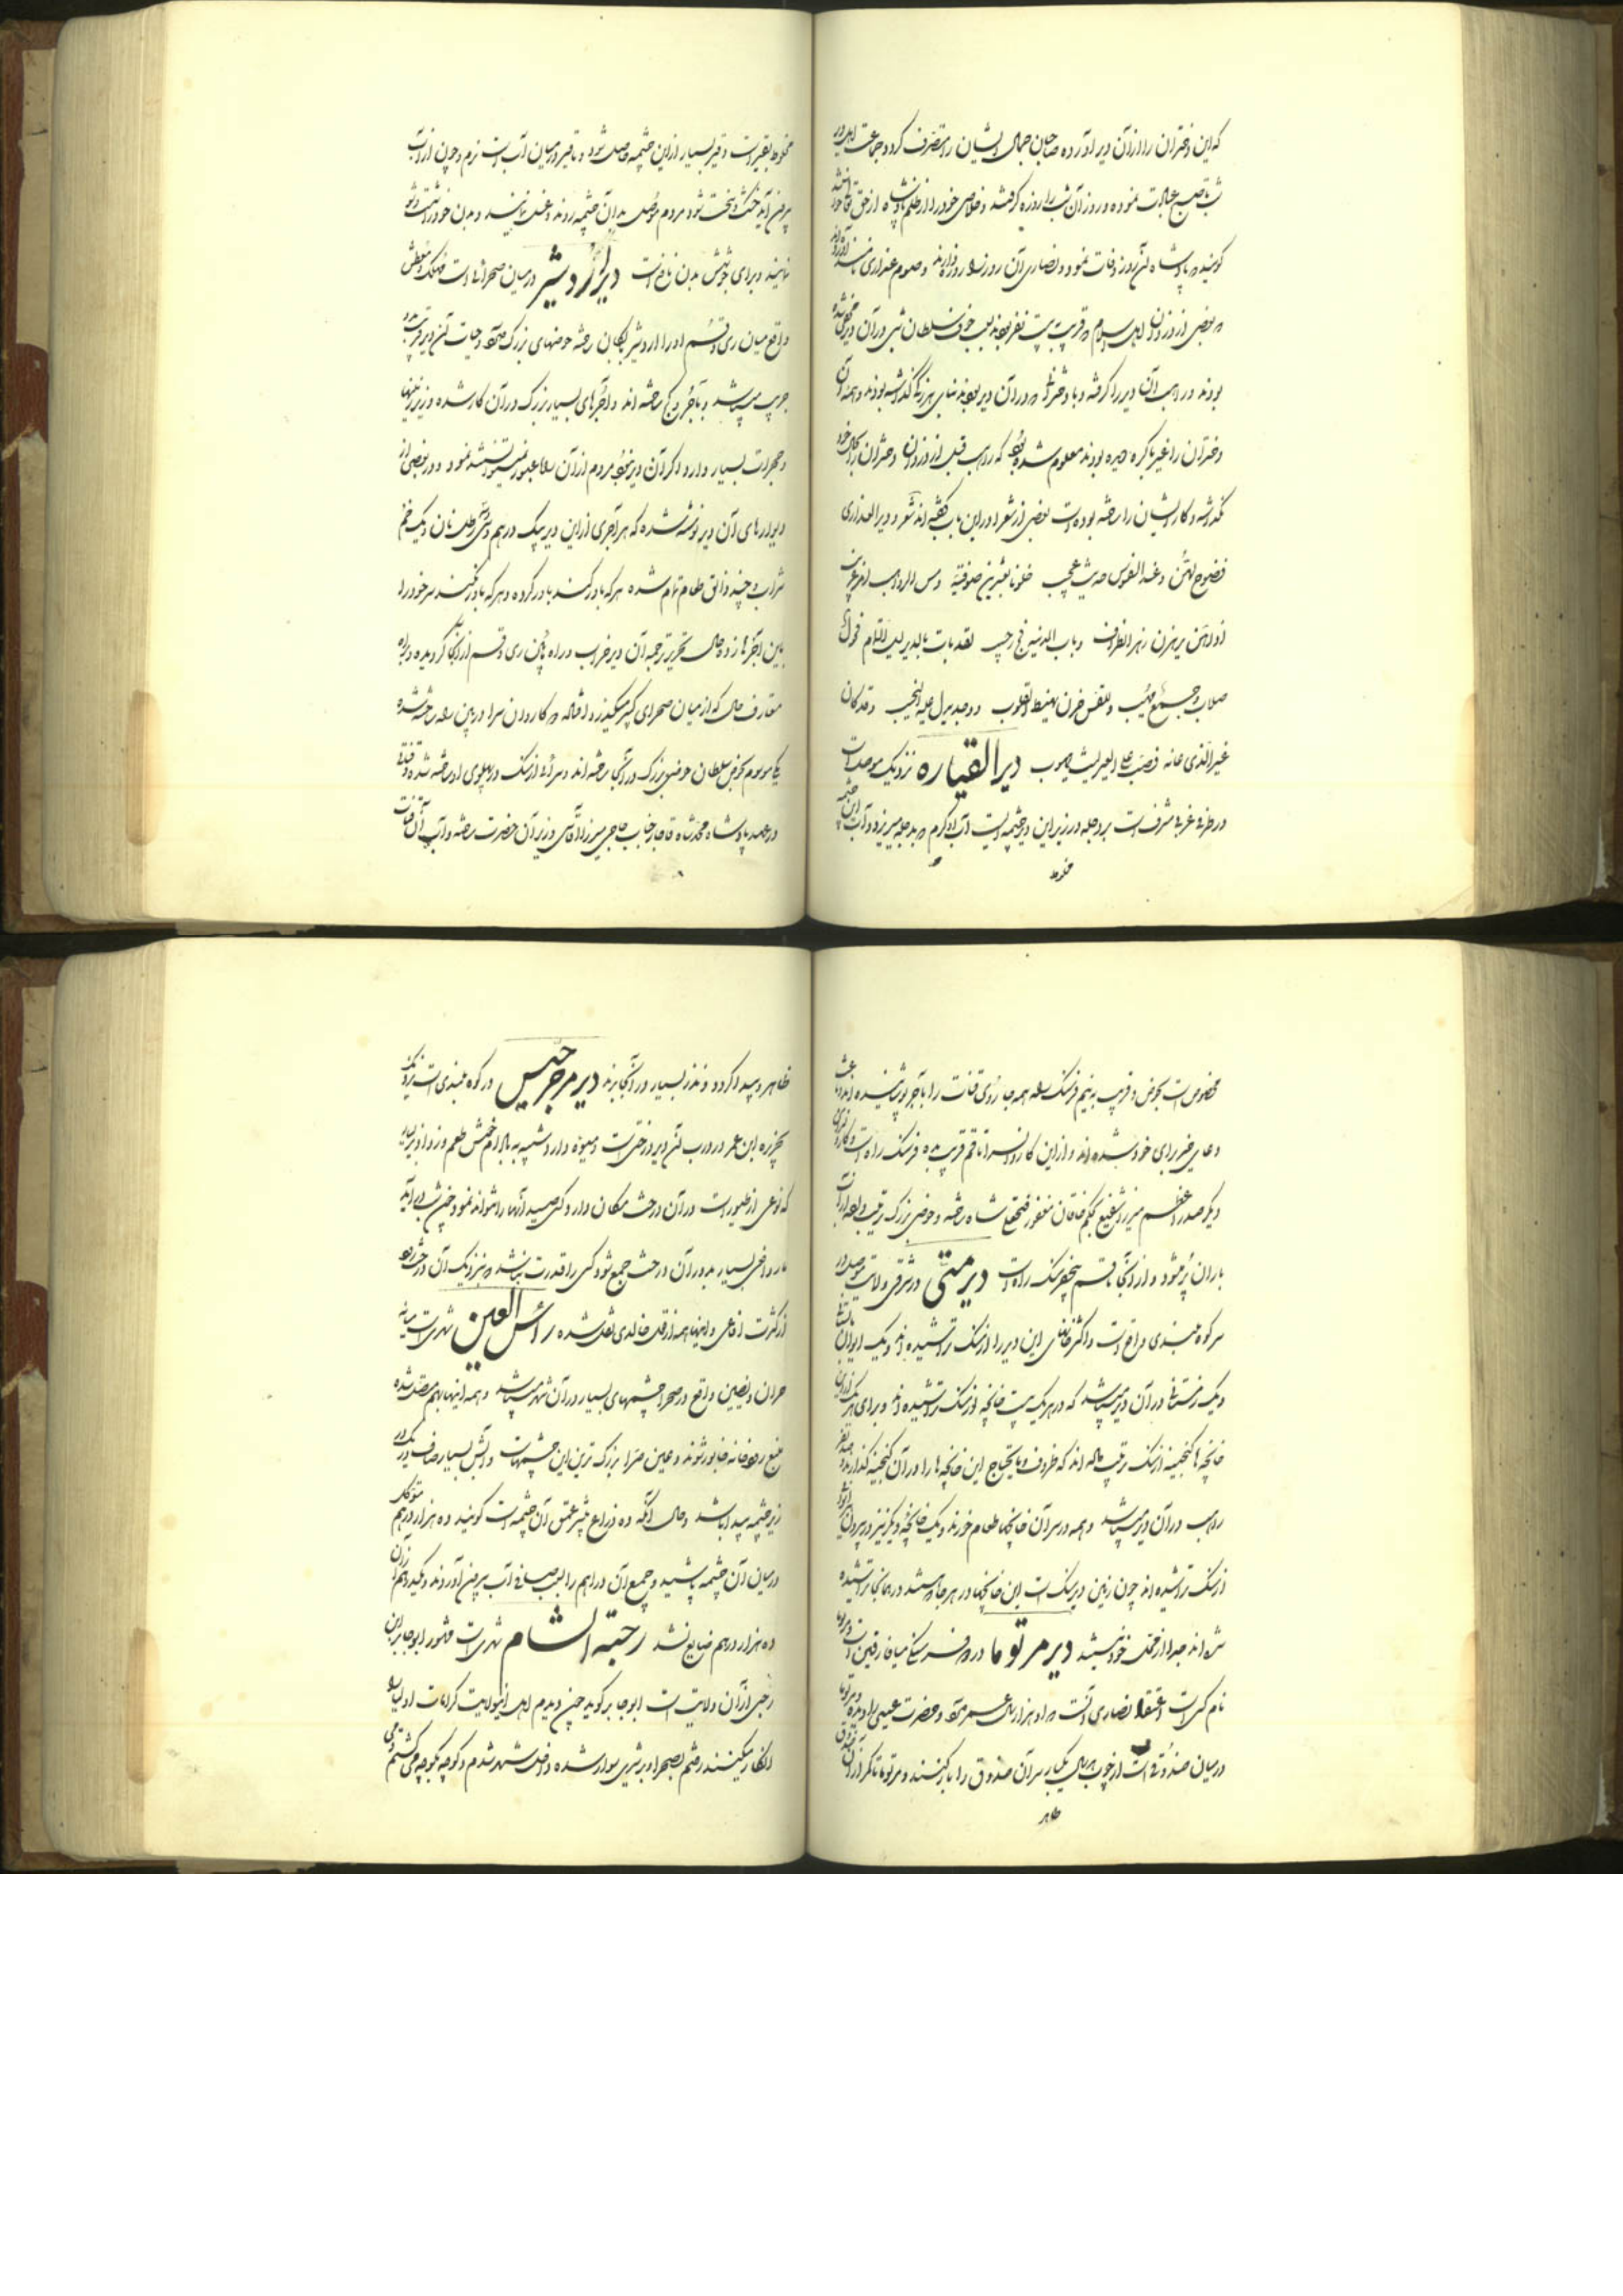 که این دختران را از آن دیر آورده صاحبان جمال ایشان را متصرف گردد جماعت
شب تا صبح عبادت نموده و روز آن شب را روزه گرفتند و خلاصی خود را از ظلم پادشاه از حق
گویند که پادشاه آن روز وفات نمود و نصاری آن روز را روزه دارند و صوم عذاری نامند
که بعضی از دزدان اهل اسلام که قریب بیست نفر بودند بسبب خوف سلطان شبی در آن دیر مخفی شده
بودند و راهب آن دیر را گرفته و با دختران که در آن دیر بودند بنای هرزگی گذاشته بودند و همه آن
دختران را غیر باکره دیده بودند معلوم شده بود که راهب قبل از دزدان دختران را بکار خود
گذاشته و کار ایشان را ساخته بوده است بعضی از شعرا در این باب گفته‌اند شعر و دیر العذاری
فضوح لهن و عند القسوس حدیث عجیب خلونا بعشرین صوفیة و مس الرواهب امر غریب
اذا هن یرهزن رهز الظراف و باب المدینة فج رحیب لقد بات بالدیر لیل التمام
صلاب و جمع مهیب و للقس حزن یهیض القلوب و وجد یدل علیه النحیب و قد کان
عیرا لذی عانة فصب علی العیر لیث هیوب دیر القیاره نزدیک موصل است
در طرف غربی مشرف است بر دجله در زیر این دیر چشمه ایست آب گرم که بدجله میریزد و آب این چشمه
مخلوط
مخلوط بقیر است و قیر بسیار از این چشمه حاصل شود و تا قیر در میان آب است نرم و چون از آب
بیرون آید خشک و سخت شود مردم موصل بدان چشمه روند و غسل نمایند و بدن خود را شست و شو
نمایند و برای جوشش بدن نافع است دیر اردشیر در میان صحرائی است مهلک و معطش
واقع میان ری و قم او را اردشیر بابکان ساخته حوضهای بزرگ دارد و حیات آن دیر قریب به ده
جریب میباشد و با آجر و گچ ساخته‌اند و آجرهای بسیار بزرگ در آن کار شده و زیرزمینها
و حجرات بسیار دارد اگر آن دیر نبود مردم از آن راه عبور نمیتوانستند نمود و در بعضی از
دیوارهای آن دیر نوشته شده که هر آجری از این دیر بیک درهم و شش رطل نان و یک خم
شراب و چند ذائق طعام تمام شده هر که باور کند باور کرده و هر که باور نکند سر خود را
باین آجرها زند و حال تحریر ترجمه آن دیر خراب و راه مابین ری و قم از آنجا گردیده و براه
متعارف حال که از میان صحرای کبیر میگذرد افتاده و کاروان سرا در بین راه ساخته شده
یکی موسوم بحوض سلطان حوض بزرگ در آنجا ساخته‌اند و سرائی از سنگ در پهلوی او ساخته شده و قناتی
در عهد پادشاه محمد شاه قاجار جناب حاجی میرزا آقاسی وزیر آن حضرت ساخته و آب آن قنات
مخصوص است بحوض و قریب به نیم فرسنگ راه همه جا روی قنات را با آجر پوشیده‌اند
دعای خیر برای خود شده‌اند و از این کاروانسرا تا قم قریب به ده فرسنگ راه است و کاروانسرای
دیگر صدر اعظم میرزا شفیع بحکم خاقان مغفور فتحعلی شاه ساخته و حوض بزرگ ترتیب داده از آب
باران پر شود و از آنجا تا قم پنج فرسنگ راه است دیر متی در شرقی ولایت موصل در
سر کوه بلندی واقع است و اکثر خانهای این دیر را از سنگ تراشیده‌اند و یک ایوان
و یک زمستانی در آن دیر میباشد که در هر یک بیست خانچه از سنگ تراشیده‌اند و برای هر یک از این
خانچه‌ها گنجینه از سنگ ترتیب داده‌اند که ظروف مایحتاج این خانچه‌ها را در آن گنجینه گذارند و صد نفر
راهب در آن دیر میباشد و همه در سر آن خانچها طعام خورند و یک خانچه دیگر نیز در پیرون
از سنگ تراشیده‌اند چون زمین دیر سنگ است این خانچها در هر جا که هستند در همانجا تراشیده
شده‌اند جدا از محل خود نیستند دیر مرتوما در دو فرسنگی میافارقین است و مرتوما
نام کسی است اعتقاد نصاری آنست که او هزار سال عمر دارد و حضرت عیسی را دیده و مرتوما
در میان صندوقی است از چوب هر سال یکبار سر آن صندوق را باز کنند و مرتوما تا کمر از آن صندوق
ظاهر
ظاهر و پیدا گردد و نذر بسیار در آنجا برند دیر مرجرجیس در کوه بلندی است نزدیک
بجزیره ابن عمر در درب آن دیر درختی است و میوه دارد شبیه به بادام خوش طعم و زرازیر
که نوعی از طیور است در آن درخت مکان دارد کسی صید آنها را نتواند نمود و چون شب در آید
مار و افعی بسیار بدور آن درخت جمع شود کسی را قدرت نباشد که نزدیک آن درخت رود
از کثرت افاعی و اینها همه از قول خالدی نقل شده راس العین شهری است میانه
حران و نصیبین واقع در صحرا چشمهای بسیار در آن شهر میباشد و همه اینها بهم متصل شده
منبع رودخانه خابور شوند و عین صرا بزرگ ترین این چشمهاست و آبش بسیار صاف
زیر چشمه پیدا باشد و حال آنکه ده ذراع بیشتر عمق آن چشمه است گویند ده هزار درهم متوکل
در میان آن چشمه پاشید و جمیع آن دراهم را بسبب صافی آب بیرون آوردند و یکدرهم از آن
ده هزار درهم ضایع نشد رحبة الشام شهری است مشهور ابوجابر این
رحبی از آن ولایت است ابوجابر گوید چون دیدم اهل این ولایت کرامات اولیا را
انکار میکنند رفتم بصحرا و بر شیری سوار شده داخل شهر شدم و کوچه بکوچه می گشتم